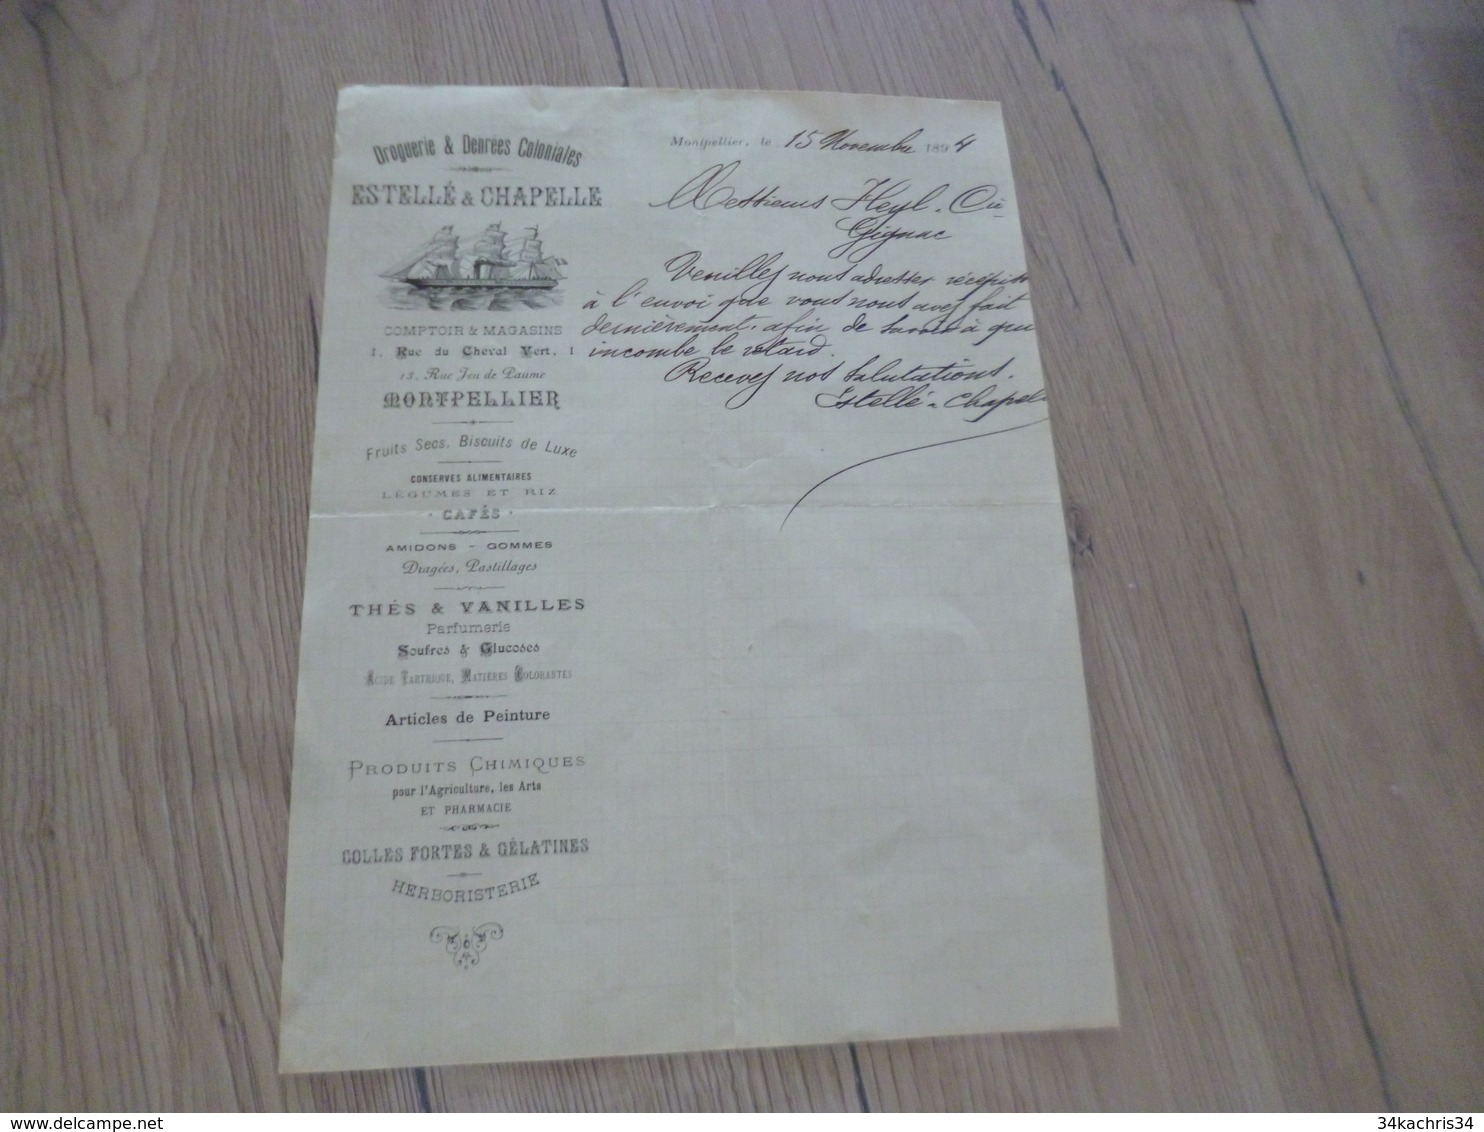 Droguerie & Denrées Coloniales
ESTELLÉ & CHAPELLE
COMPTOIR & MAGASINS
1, Rue du Cheval Vert, 1
13, Rue Jeu de Paume
MONTPELLIER
Fruits Secs, Biscuits de Luxe
CONSERVES ALIMENTAIRES
LÉGUMES ET RIZ
· CAFÉS ·
AMIDONS - GOMMES
Dragées, Pastillages
THÉS & VANILLES
Parfumerie
Soufres & Glucoses
ACIDE TARTRIQUE, MATIÈRES COLORANTES
Articles de Peinture
PRODUITS CHIMIQUES
pour l'Agriculture, les Arts
ET PHARMACIE
COLLES FORTES & GÉLATINES
HERBORISTERIE
Montpellier, le 15 Novembre 1894
Messieurs Heyl. Cie
Gignac
Veuillez nous adresser récépissé
à l'envoi que vous nous avez fait
dernièrement, afin de savoir à qui
incombe le retard.
Recevez nos salutations.
Estellé - Chapel
34kachris34